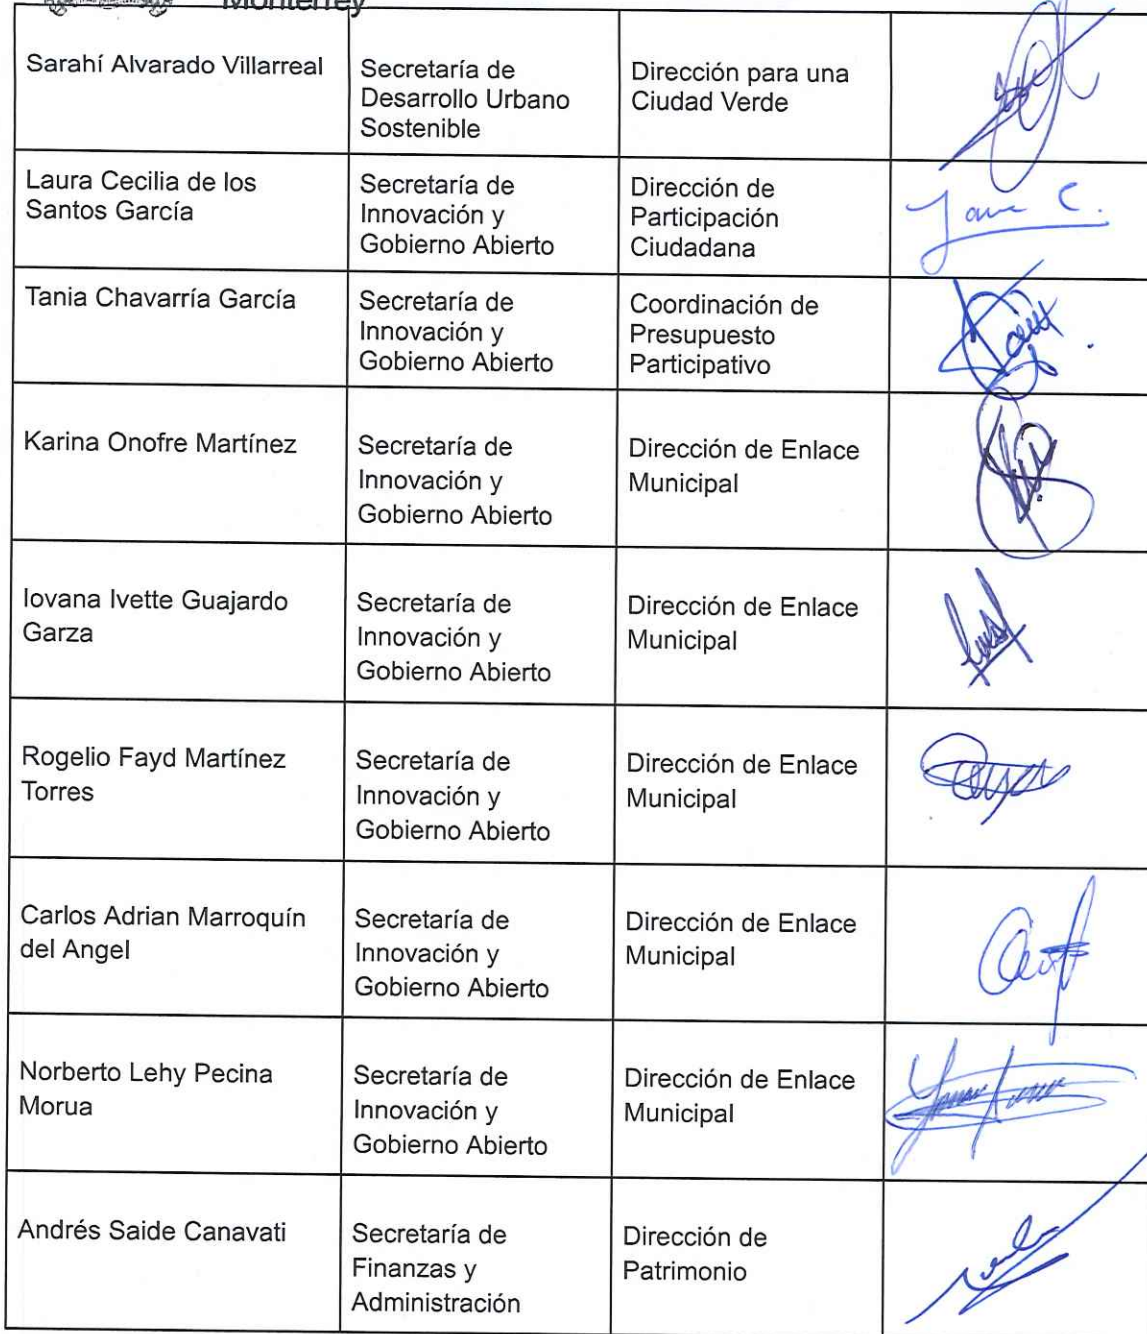 Monterrey
Sarahí Alvarado Villarreal
Secretaría de
Desarrollo Urbano
Sostenible
Dirección para una
Ciudad Verde
Laura Cecilia de los
Santos García
Secretaría de
Innovación y
Gobierno Abierto
Dirección de
Participación
Ciudadana
Tania Chavarría García
Secretaría de
Innovación y
Gobierno Abierto
Coordinación de
Presupuesto
Participativo
Karina Onofre Martínez
Secretaría de
Innovación y
Gobierno Abierto
Dirección de Enlace
Municipal
Iovana Ivette Guajardo
Garza
Secretaría de
Innovación y
Gobierno Abierto
Dirección de Enlace
Municipal
Rogelio Fayd Martínez
Torres
Secretaría de
Innovación y
Gobierno Abierto
Dirección de Enlace
Municipal
Carlos Adrian Marroquín
del Angel
Secretaría de
Innovación y
Gobierno Abierto
Dirección de Enlace
Municipal
Norberto Lehy Pecina
Morua
Secretaría de
Innovación y
Gobierno Abierto
Dirección de Enlace
Municipal
Andrés Saide Canavati
Secretaría de
Finanzas y
Administración
Dirección de
Patrimonio